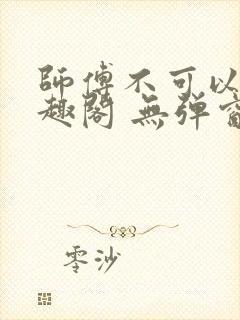 師傅不可以
趣閣 無弹
零沙